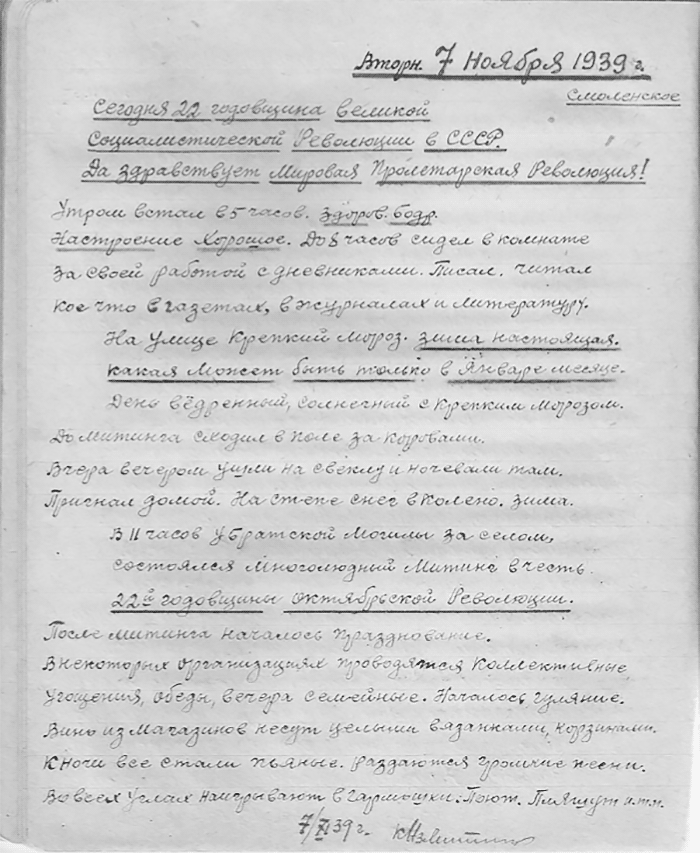 Вторн. 7 Ноября 1939 г.
Смоленское
Сегодня 22 годовщина великой
Социалистической Революции в СССР.
Да здравствует Мировая Пролетарская Революция!
Утром встал в 5 часов. Здоров. бодр.
Настроение Хорошое. До 8 часов сидел в комнате
за своей работой с дневниками. Писал. читал
кое что в газетах, в журналах и литературу.
На улице Крепкий Мороз. зима настоящая.
какая Может быть только в Январе месяце.
День вёдренный, солнечный с крепким морозом.
До митинга сходил в поле за коровами.
Вчера вечером ушли на свеклу и ночевали там.
Пригнал домой. На степе снег в колено. зима.
В 11 часов у братской Могилы за селом,
состоялся многолюдный Митинг в честь
22й годовщины Октябрьской Революции.
После митинга началось празднование.
В некоторых организациях проводятся Коллективные
угощения, обеды, вечера семейные. Началось гуляние.
Вино из магазинов несут целыми вязанками, корзинами.
К ночи все стали пьяные. раздаются громкие песни.
Во всех углах наигрывают в Гармошки. Поют. Пляшут и т.п.
7/XI 39 г.